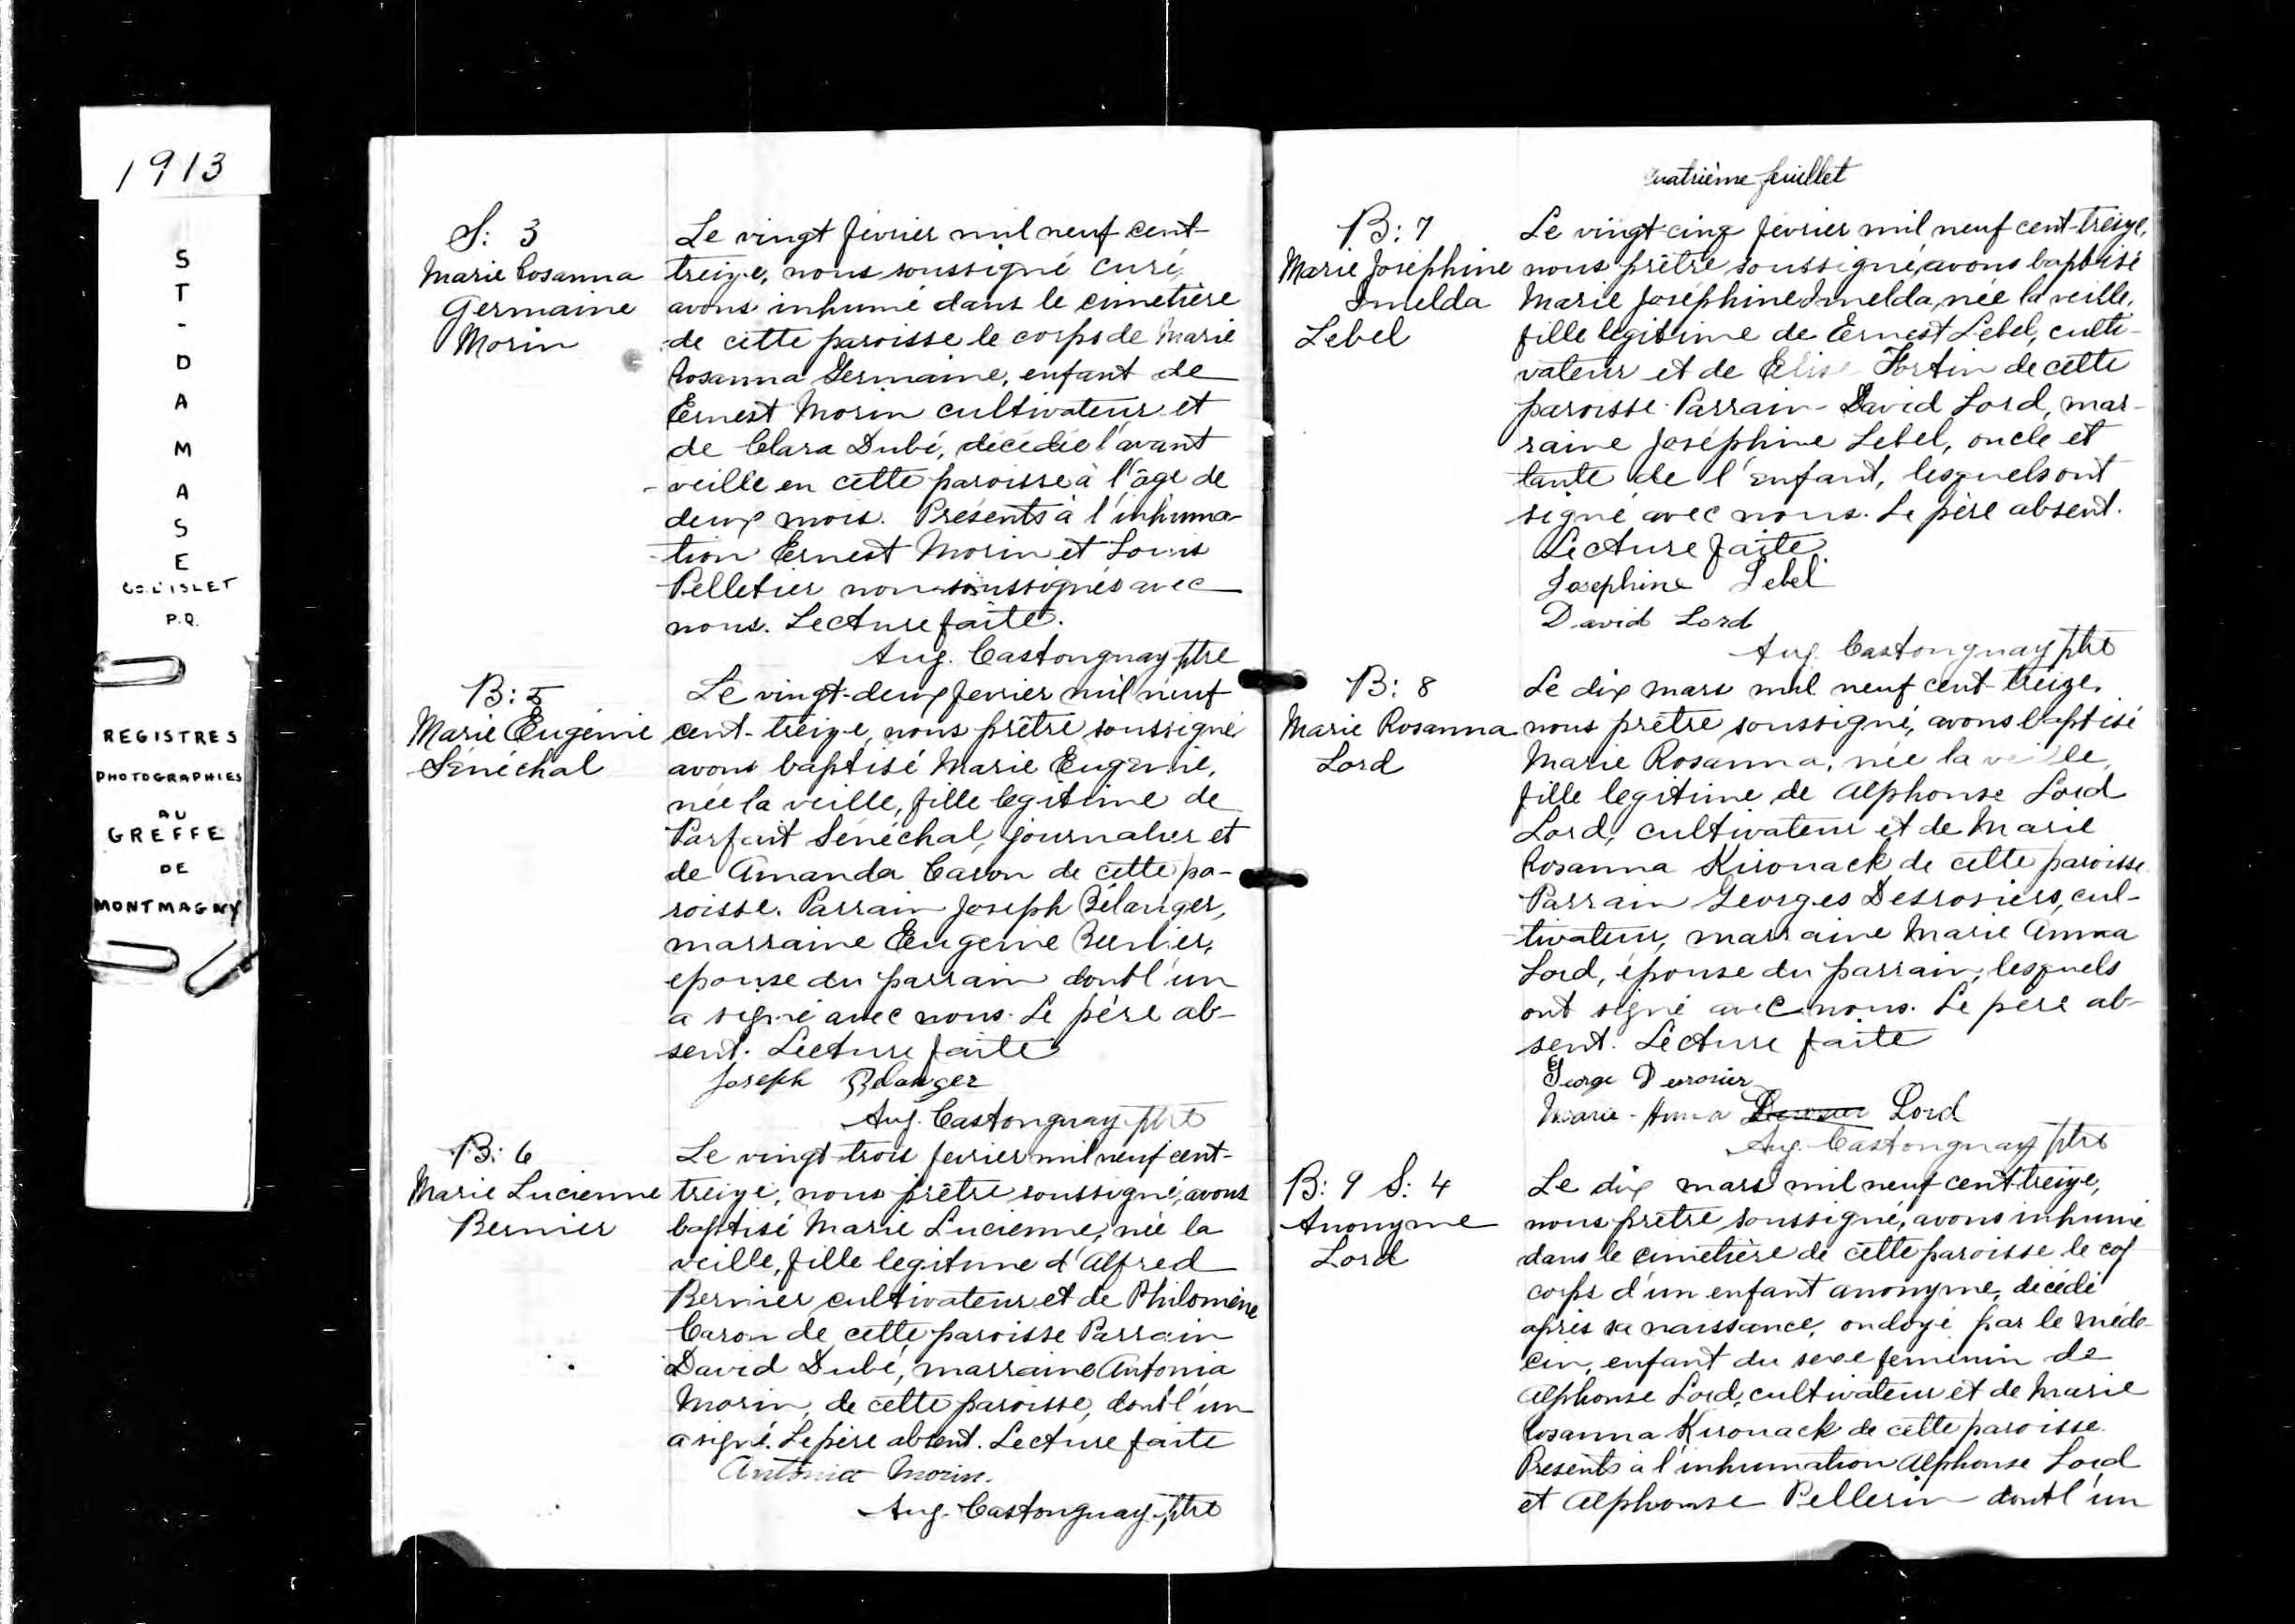 1913
S
T
-
D
A
M
A
S
E
CO. L'ISLET
P.Q.
REGISTRES
PHOTOGRAPHIES
AU
GREFFE
DE
MONTMAGNY
S: 3
Marie Rosanna
Germaine
Morin
Le vingt fevrier mil neuf cent-
treize, nous soussigné curé,
avons inhumé dans le cimetière
de cette paroisse le corps de Marie
Rosanna Germaine, enfant de
Ernest Morin cultivateur et
de Clara Dubé, décédée l'avant
-veille en cette paroisse à l'âge de
deux mois. Présents à l'inhuma-
-tion Ernest Morin et Louis
Pelletier non soussignés avec
nous. Lecture faite.
Aug. Castonguay ptre
B: 5
Marie Eugénie
Sénéchal
Le vingt-deux fevrier mil neuf
cent-treize, nous prêtre soussigné
avons baptisé Marie Eugénie,
née la veille, fille legitime de
Parfait Sénéchal, journalier et
de Amanda Caron de cette pa-
roisse. Parrain Joseph Bélanger,
marraine Eugenie
epouse du parrain dont l'un
a signé avec nous. Le père ab-
sent. Lecture faite
Joseph Belanger
Aug. Castonguay ptre
B: 6
Marie Lucienne
Bernier
Le vingt-trois fevrier mil neuf cent-
treize, nous prêtre soussigné, avons
baptisé Marie Lucienne, née la
veille, fille legitime d'Alfred
Bernier cultivateur et de Philomène
Caron de cette paroisse Parrain
David Dubé, marraine Antonia
Morin, de cette paroisse, dont l'un
a signé. Le père absent. Lecture faite
Antonia Morin.
Aug. Castonguay ptre
quatrième feuillet
B: 7
Marie Joséphine
Imelda
Lebel
Le vingt-cinq fevrier mil neuf cent-treize,
nous prêtre soussigné, avons baptisé
Marie Joséphine Imelda, née la veille,
fille legitime de Ernest Lebel, culti-
vateur et de Elise Fortin de cette
paroisse. Parrain - David Lord, mar-
raine Joséphine Lebel, oncle et
tante de l'enfant, lesquels ont
signé avec nous. Le père absent.
Lecture faite.
Josephine Lebel
David Lord
Aug. Castonguay ptre
B: 8
Marie Rosanna
Lord
Le dix mars mil neuf cent-treize,
nous prêtre soussigné, avons baptisé
Marie Rosanna, née la veille,
fille legitime de Alphonse Lord
Lord, cultivateur et de Marie
Rosanna Kirouack de cette paroisse
Parrain Georges Desrosiers, cul-
-tivateur, marraine Marie Anna
Lord, épouse du parrain, lesquels
ont signé avec nous. Le père ab-
sent. Lecture faite
George Desrosier
Marie-Anna Lord
Aug. Castonguay ptre
B: 9 S: 4
Anonyme
Lord
Le dix mars mil neuf cent treize,
nous prêtre soussigné, avons inhumé
dans le cimetière de cette paroisse le cof
corps d'un enfant anonyme, décédé
après sa naissance, ondoyé par le méde-
cin, enfant du sexe feminin de
Alphonse Lord, cultivateur et de Marie
Rosanna Kirouack de cette paroisse.
Présents à l'inhumation Alphonse Lord
et Alphonse Pellerin dont l'un